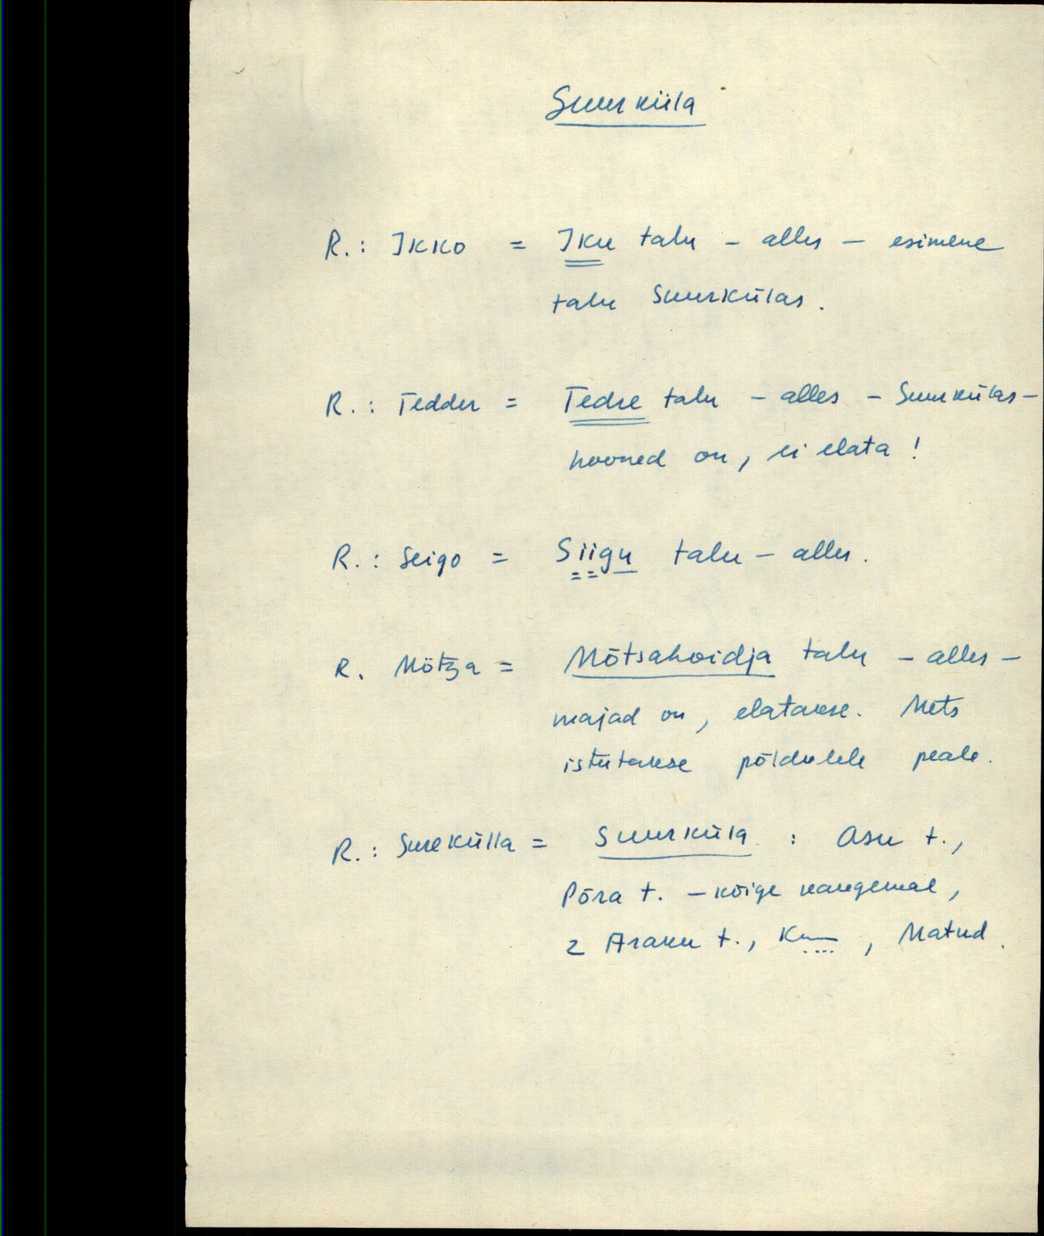 Suurküla
R.: Ikko = Iku talu – alles – esimene
talu Suurkülas.
R.: Tedder = Tedre talu – alles – Suurkülas –
hooned on, ei elata!
R.: Seigo = Siigu talu – alles.
R. Mötza = Mõtsahoidja talu – alles –
majad on, elatakse. Mets
istutakse põldudele peale.
R.: Surekülla = Suurküla : Asu t.,
Põra t. – kõige kaugemal,
2 Araku t., , Matud.